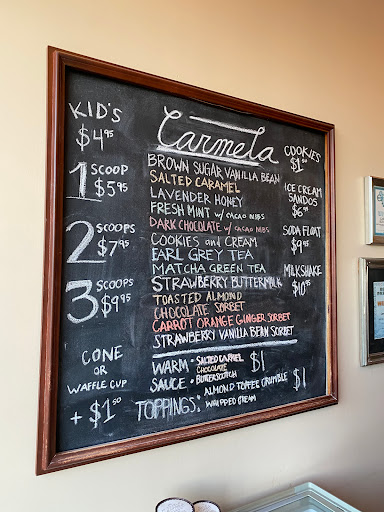 KID'S
$4⁹⁵
1 SCOOP
$5⁹⁵
2 SCOOPS
$7⁹⁵
3 SCOOPS
$9⁹⁵
CONE
OR
WAFFLE CUP
+ $1⁵⁰
Carmela
BROWN SUGAR VANILLA BEAN
SALTED CARAMEL
LAVENDER HONEY
FRESH MINT w/ CACAO NIBS
DARK CHOCOLATE w/ CACAO NIBS
COOKIES and CREAM
EARL GREY TEA
MATCHA GREEN TEA
STRAWBERRY BUTTERMILK
TOASTED ALMOND
CHOCOLATE SORBET
CARROT ORANGE GINGER SORBET
STRAWBERRY VANILLA BEAN SORBET
WARM SAUCE - SALTED CARAMEL
CHOCOLATE
BUTTERSCOTCH
$1
TOPPINGS: ALMOND TOFFEE CRUMBLE
WHIPPED CREAM
$1
COOKIES
ICE CREAM
SANDOS
SODA FLOAT
MILKSHAKE